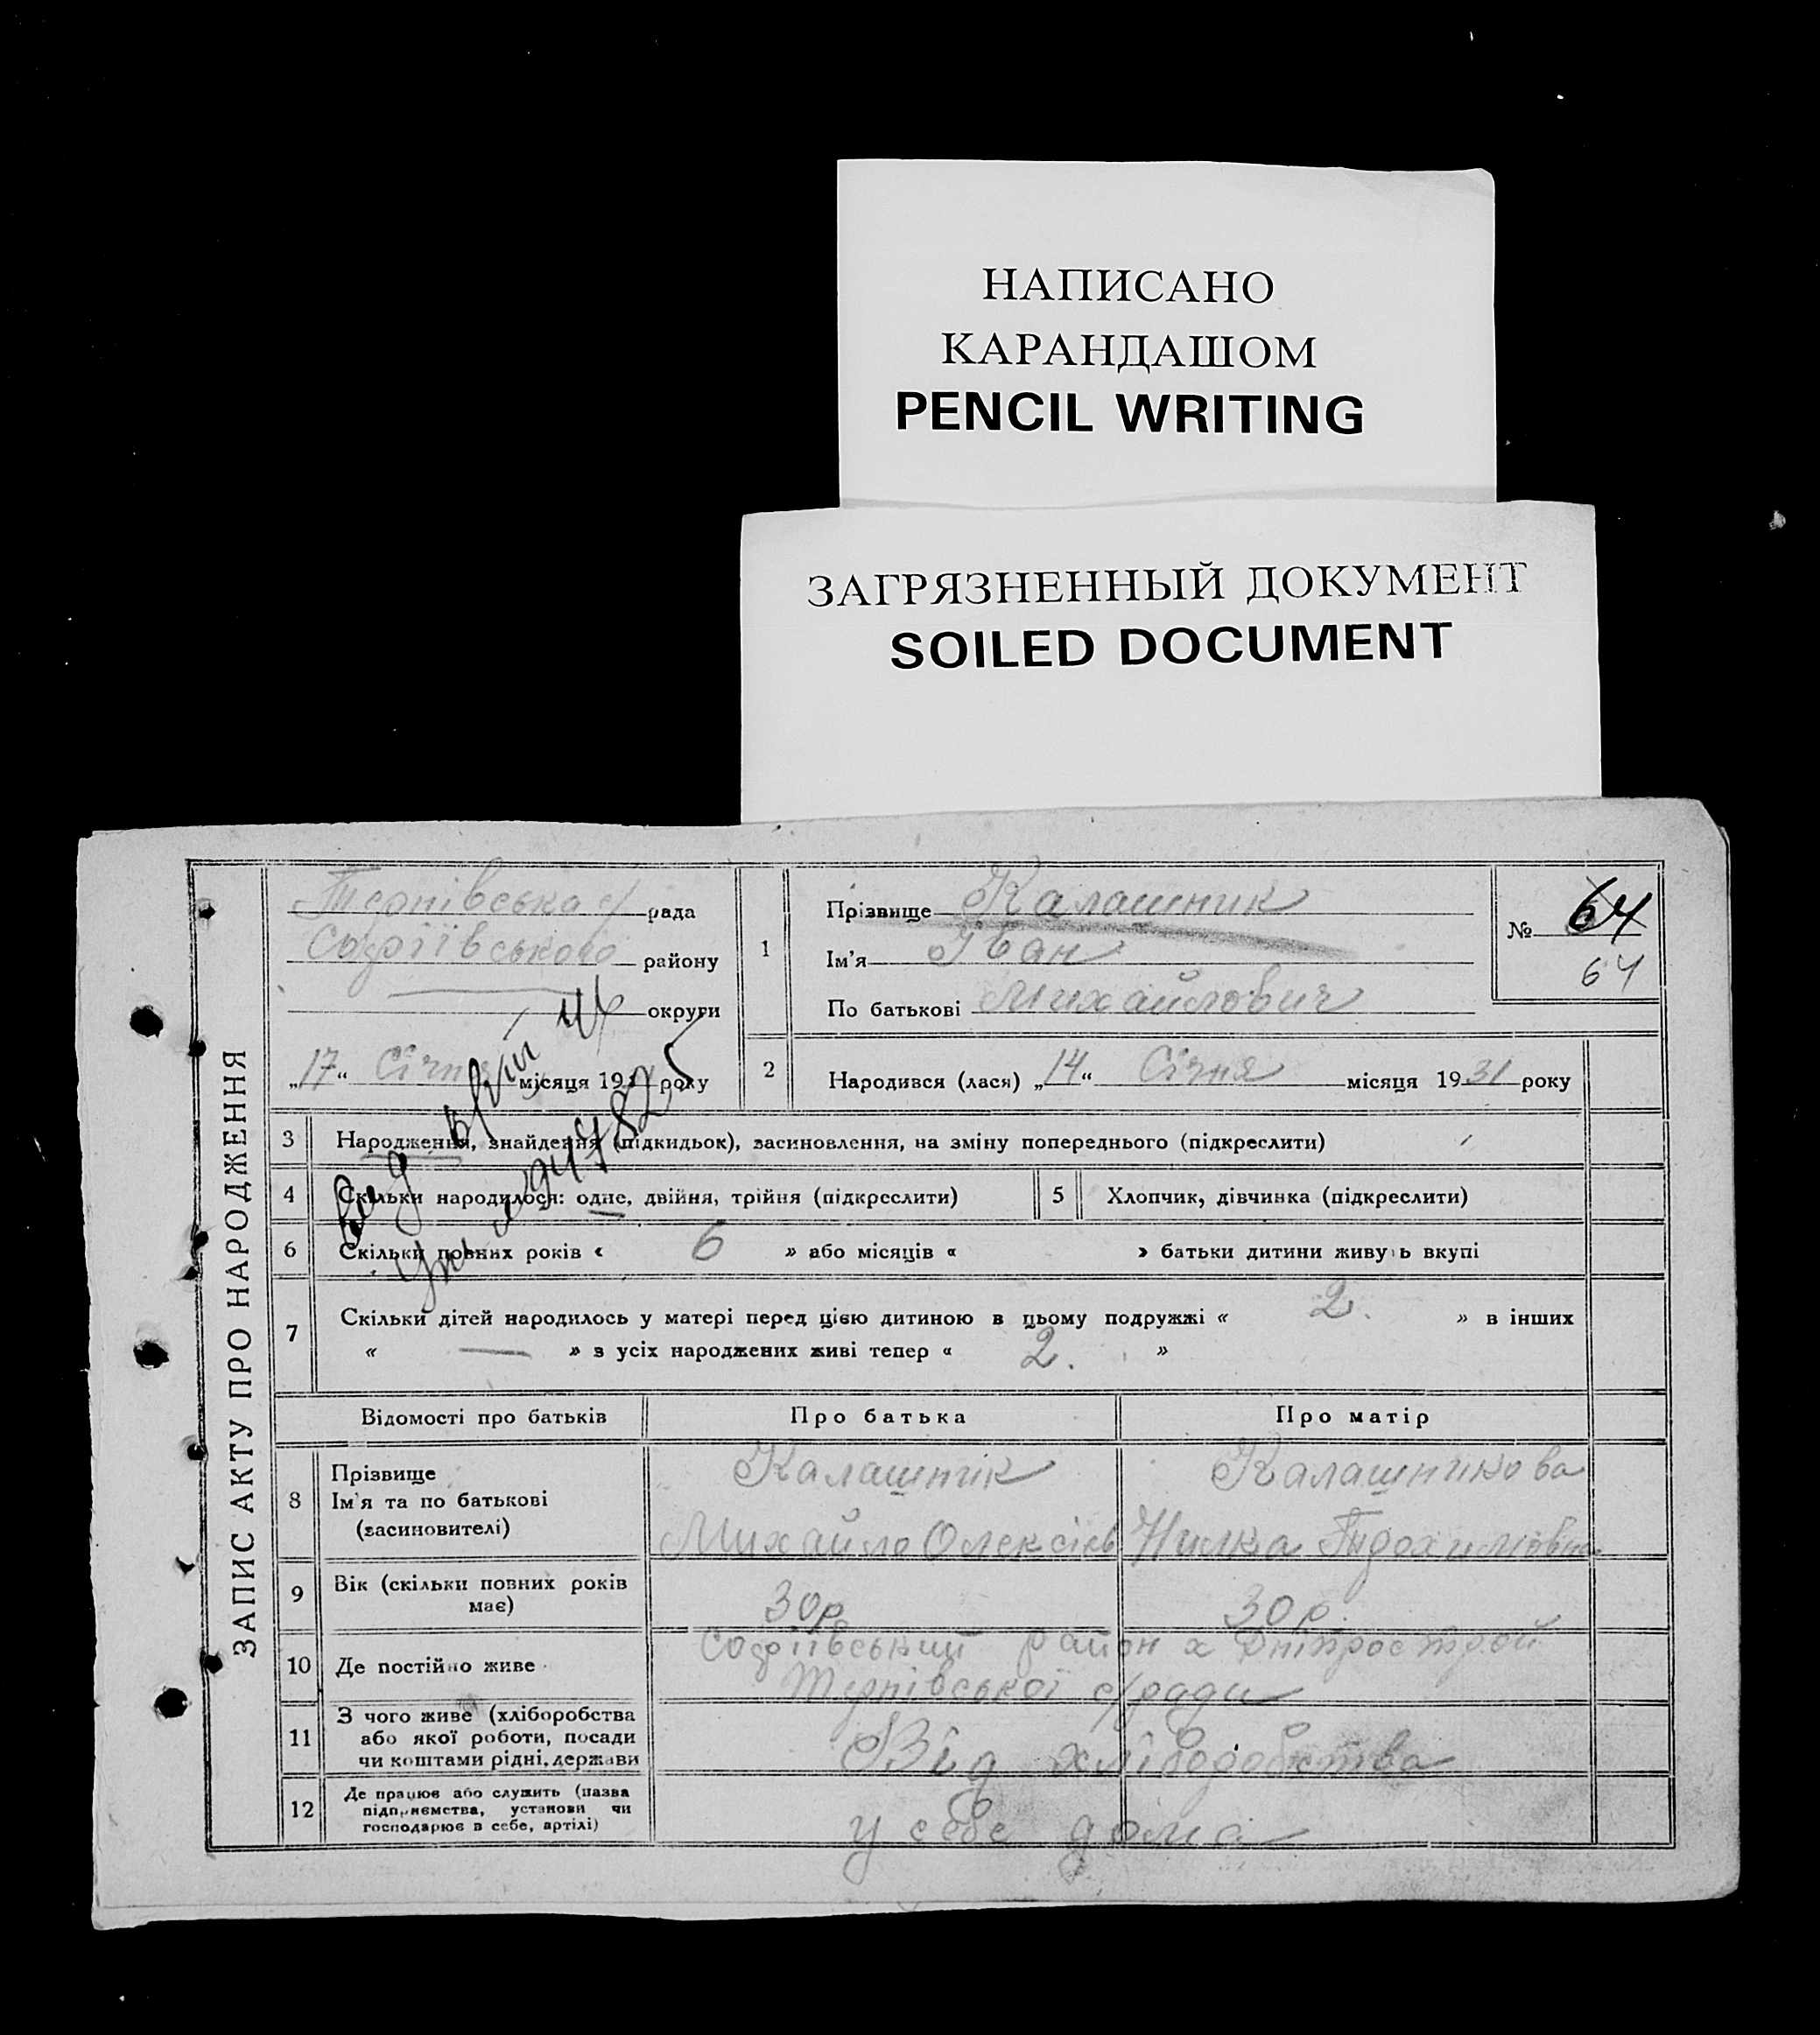 НАПИСАНО
КАРАНДАШОМ
PENCIL WRITING
ЗАГРЯЗНЕННЫЙ ДОКУМЕНТ
SOILED DOCUMENT
ЗАПИС АКТУ ПРО НАРОДЖЕННЯ
Тернівська с/рада
Софіївського району
округи
„17“ Січня місяця 19 року
1
Прізвище Калашник
Ім'я Іван
По батькові Михайлович
№ 64
64
2
Народився (лася) „14“ Січня місяця 1931 року
3 Народження, знайдення (підкидьок), засиновлення, на зміну попереднього (підкреслити)
4 Скільки народилося: одне, двійня, трійня (підкреслити)
5 Хлопчик, дівчинка (підкреслити)
6 Скільки повних років « 6 » або місяців « » батьки дитини живуть вкупі
7 Скільки дітей народилось у матері перед цією дитиною в цьому подружжі « 2. » в інших
« — » з усіх народжених живі тепер « 2. »
Відомості про батьків Про батька Про матір
8 Прізвище
Ім'я та по батькові
(засиновителі)
Калашник
Михайло Олексієв
Калашникова
9 Вік (скільки повних років
має)
30 р.
30 р.
10 Де постійно живе
Софіївський район х Дніпрострой
Тернівської с/ради
11 З чого живе (хліборобства
або якої роботи, посади
чи коштами рідні, держави
Від
12 Де працює або служить (назва
підприємства, установи чи
господарює в себе, артілі)
у себе дома